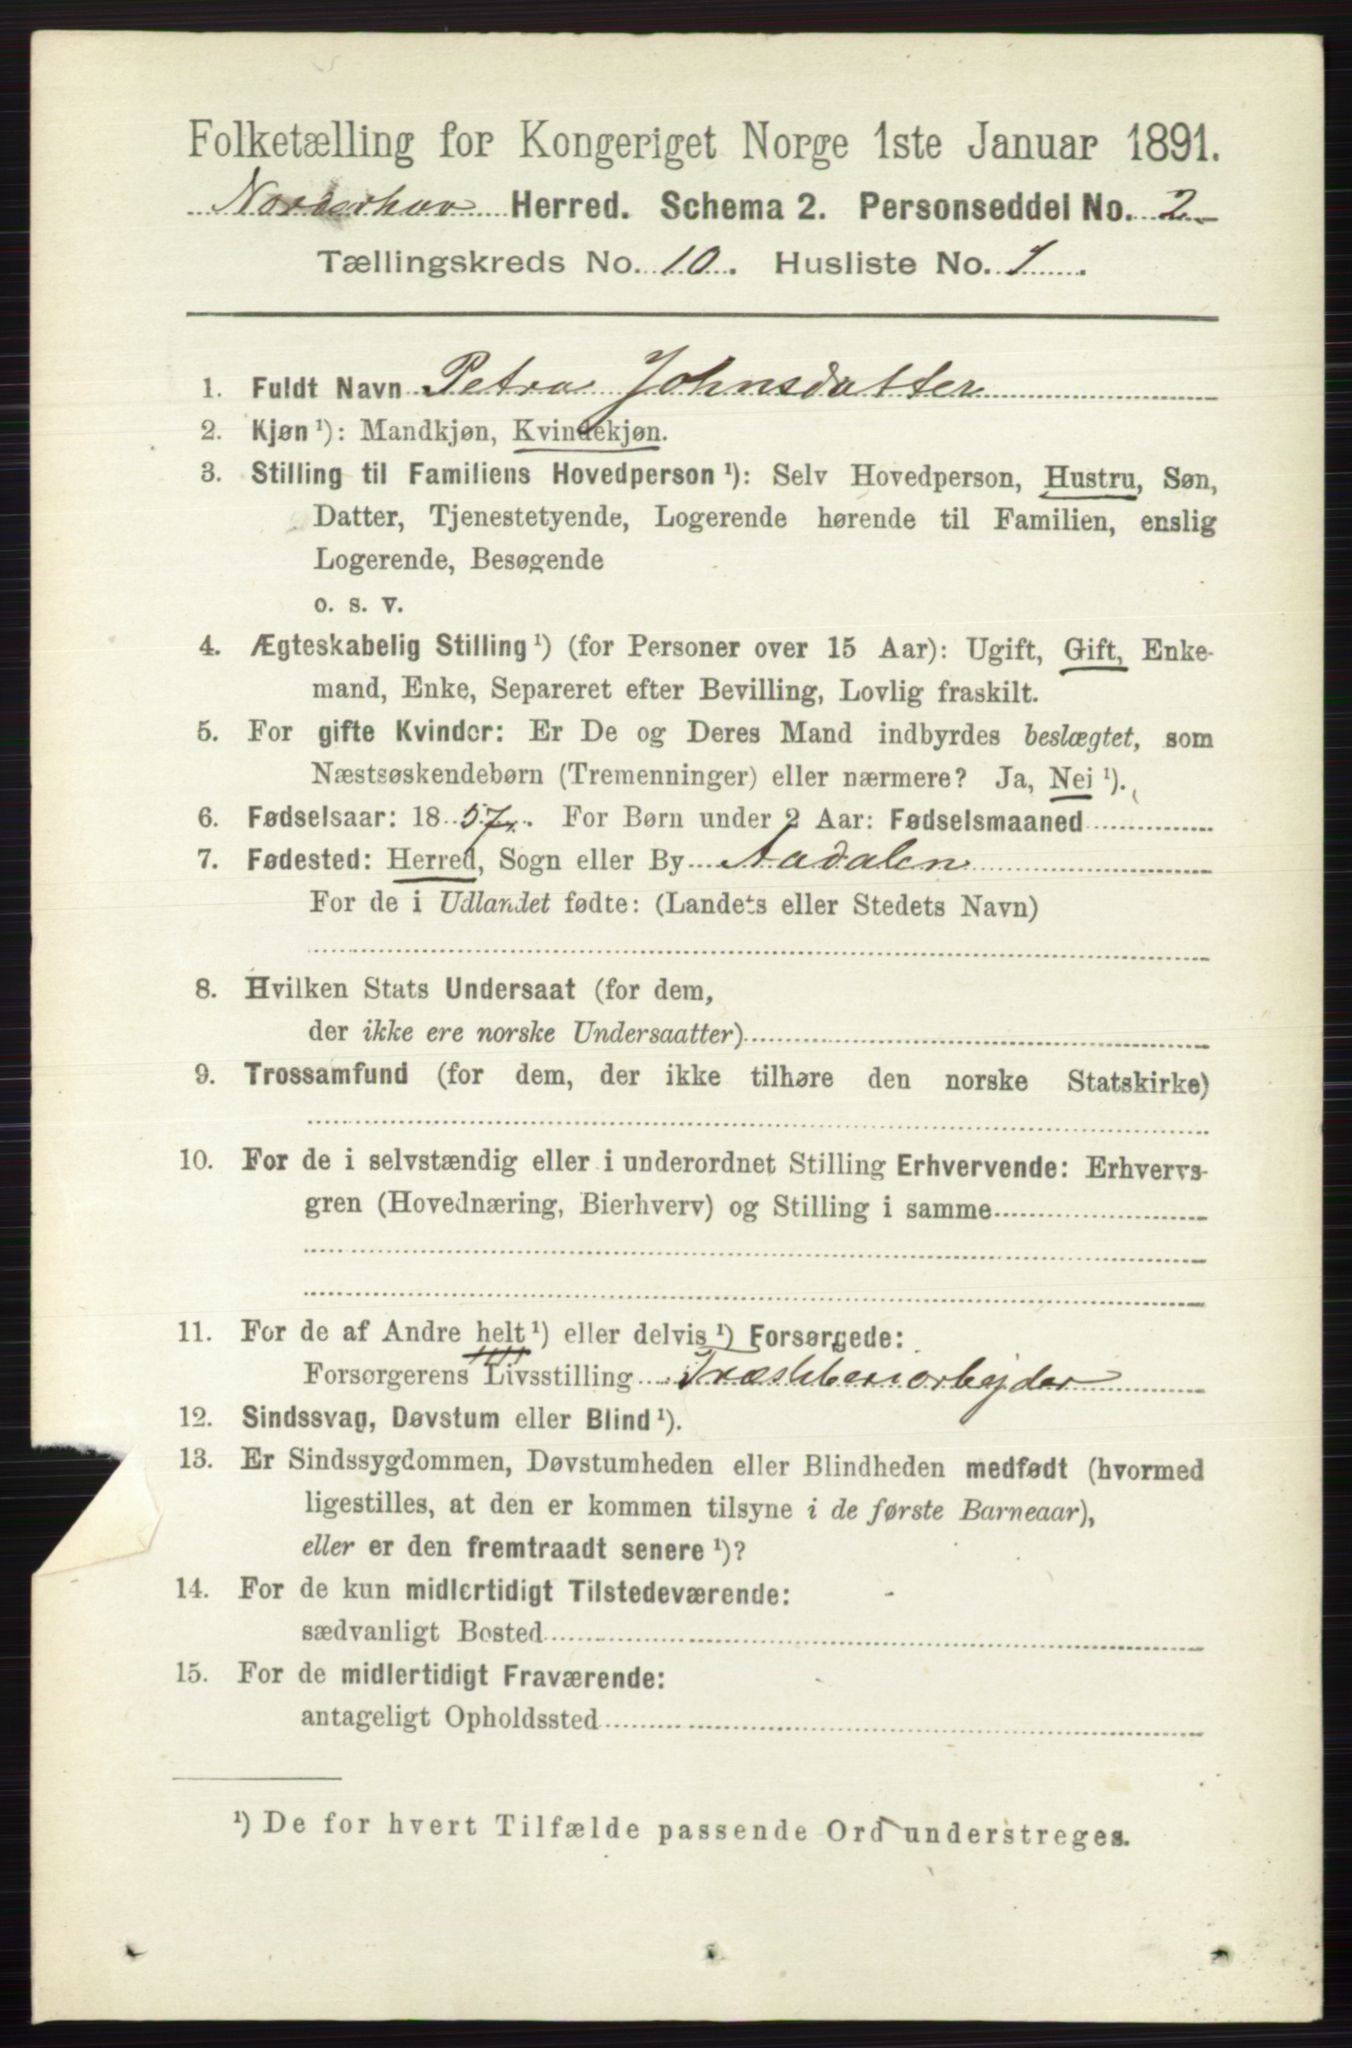 Folketælling for Kongeriget Norge 1ste Januar 1891.
Norderhov Herred. Schema 2. Personseddel No. 2
Tællingskreds No. 10. Husliste No. 1.
1. Fuldt Navn Petra Johnsdatter
2. Kjøn ¹): Mandkjøn, Kvindekjøn.
3. Stilling til Familiens Hovedperson ¹): Selv Hovedperson, Hustru, Søn,
Datter, Tjenestetyende, Logerende hørende til Familien, enslig
Logerende, Besøgende
o. s. v.
4. Ægteskabelig Stilling ¹) (for Personer over 15 Aar): Ugift, Gift, Enke-
mand, Enke, Separeret efter Bevilling, Lovlig fraskilt.
5. For gifte Kvinder: Er De og Deres Mand indbyrdes beslægtet, som
Næstsøskendebørn (Tremenninger) eller nærmere? Ja, Nei ¹).
6. Fødselsaar: 1857. For Børn under 2 Aar: Fødselsmaaned
7. Fødested: Herred, Sogn eller By Aadalen
For de i Udlandet fødte: (Landets eller Stedets Navn)
8. Hvilken Stats Undersaat (for dem,
der ikke ere norske Undersaatter)
9. Trossamfund (for dem, der ikke tilhøre den norske Statskirke)
10. For de i selvstændig eller i underordnet Stilling Erhvervende: Erhvervs-
gren (Hovednæring, Bierhverv) og Stilling i samme
11. For de af Andre helt ¹) eller delvis ¹) Forsørgede:
Forsørgerens Livsstilling Træsliberiarbejder
12. Sindssvag, Døvstum eller Blind ¹).
13. Er Sindssygdommen, Døvstumheden eller Blindheden medfødt (hvormed
ligestilles, at den er kommen tilsyne i de første Barneaar),
eller er den fremtraadt senere ¹)?
14. For de kun midlertidigt Tilstedeværende:
sædvanligt Bosted
15. For de midlertidigt Fraværende:
antageligt Opholdssted
¹) De for hvert Tilfælde passende Ord understreges.